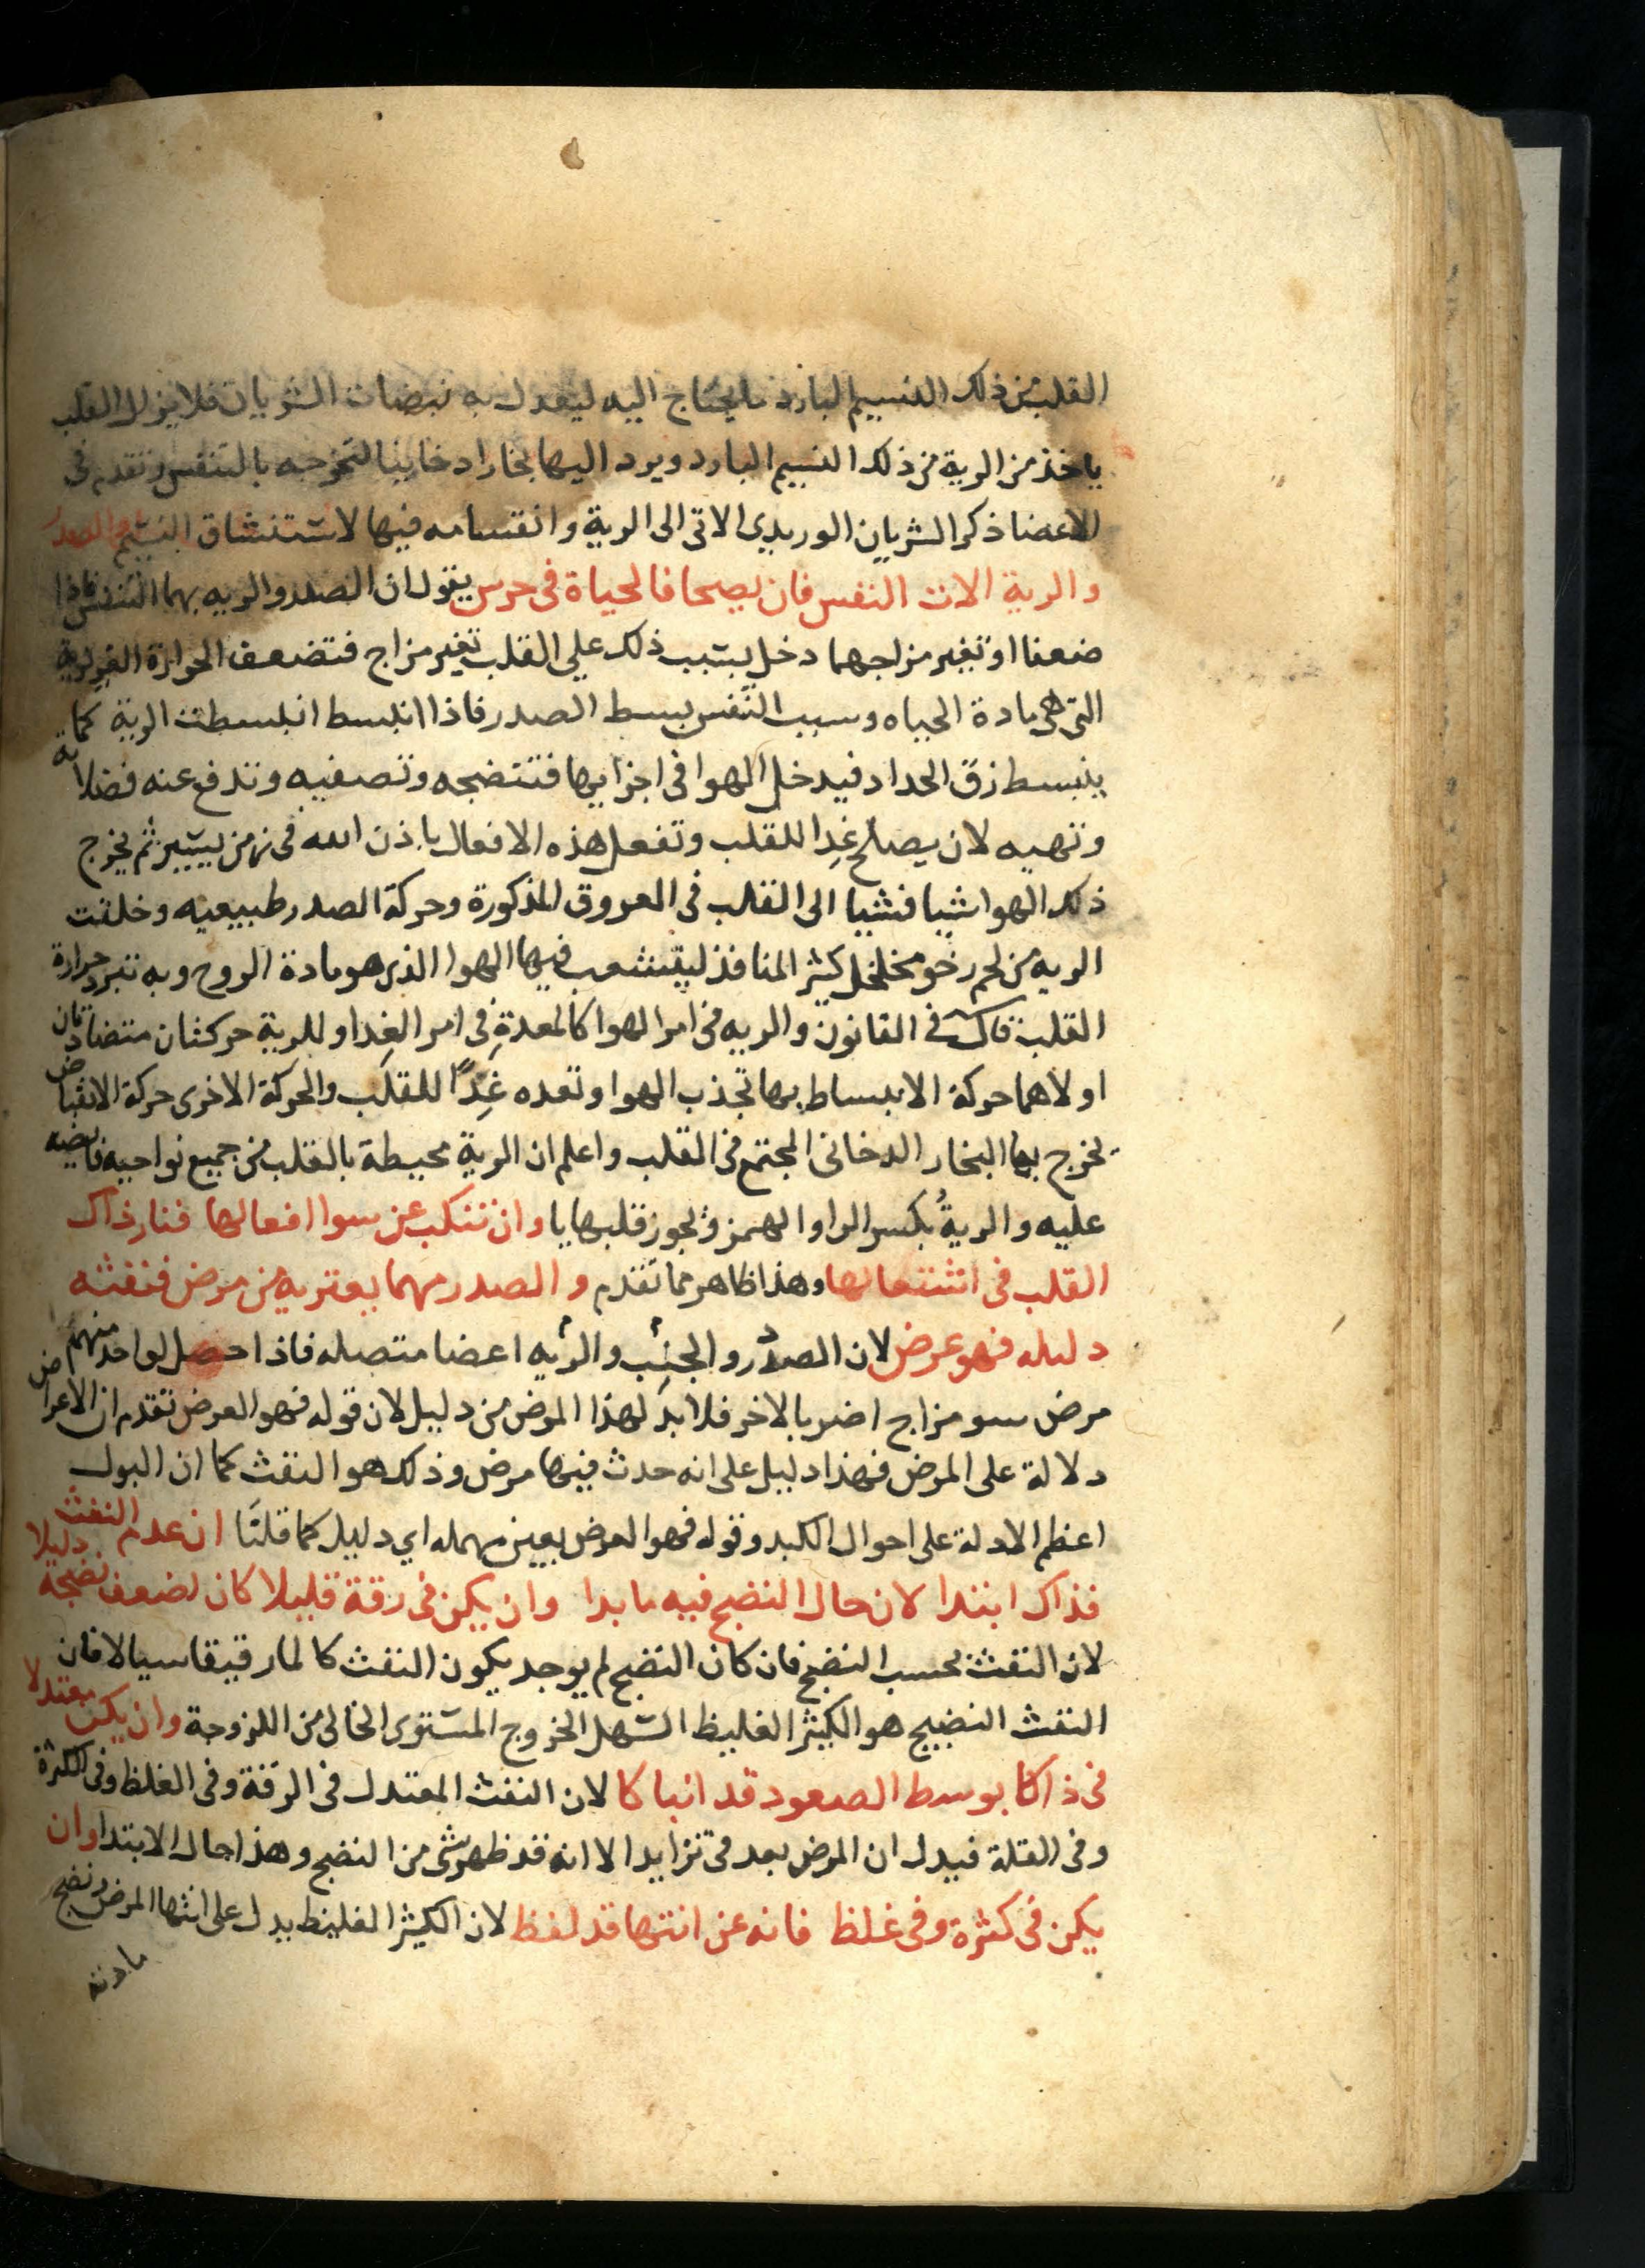 القلب من ذلك النسيم البارد ما يحتاج اليه ليعدل به نبضات الشريان فلا يزال القلب
ياخذ من الرية من ذلك النسيم البارد ويرد اليها بخارا دخانيا لتخرجه بالتنفس وتقدم في
الاعضا ذكر الشريان الوريدي الاتي الى الرية وانقسامه فيها لاستنشاق النسيم الصدر
والرية الات النفس فان يصحا فالحياة في حرس يقول ان الصدر والريه بهما التنفس فاذا
ضعفا او تغير مزاجهما دخل بسبب ذلك علي القلب تغير مزاج فتضعف الحرارة الغريزية
التي هي مادة الحياه وسبب النفس بسط الصدر فاذا انبسط انبسطت الرية كما
ينبسط زق الحداد فيدخل الهوا في اجزايها فتنضجه وتصفيه وتدفع عنه فضلاته
وتهيه لان يصلح غذا للقلب وتفعل هذه الافعال باذن الله في زمن يسير ثم يخرج
ذلك الهوا شيا فشيا الى القلب في العروق المذكورة وحركة الصدر طبيعيه وخلقت
الريه من لحم رخو مخلخل كثير المنافذ ليتشعب فيها الهوا الذي هو مادة الروح وبه تبرد حرارة
القلب قال في القانون والريه في امر الهوا كالمعدة في امر الغذا وللرية حركتان متضادتان
اولاهما حركة الانبساط بها تجذب الهوا وتعده غذا للقلب والحركة الاخرى حركة الانقباض
يخرج بها البخار الدخاني المجتمع في القلب واعلم ان الرية محيطة بالقلب من جميع نواحيه قابضه
عليه والرية بكسر الرا والهمز ويجوز قلبها يا وان تنكب عن سوا افعالها فنار ذاك
القلب في اشتعالها وهذا ظاهر مما تقدم والصدر مهما يعتريه من مرض فنفثه
دليله فهو عرض لان الصدر والجنب والريه اعضا متصله فاذا حصل لواحد منهم
مرض سو مزاج اضر بالاخر فلا بد لهذا المرض من دليل لان قوله فهو العرض تقدم ان الاعراض
دلالة على المرض فهذا دليل على انه حدث فيها مرض وذلك هو النفث كما ان البول
اعظم الادلة على احوال الكبد وقوله فهو العرض بعين مهمله اي دليل كما قلنا ان عدم النفث دليلا
فذاك ابتدا لان حال النضج فيه ما بدا وان يكن في رقة قليلا كان لضعف نضجه
لان النفث بحسب النضج فان كان النضج لم يوجد يكون النفث كالما رقيقا سيالا فان
النفث النضيج هو الكثير الغليظ السهل الخروج المستوى الخالي من اللزوجة وان يكن معتدلا
في ذا كا بوسط الصعود قد انباكا لان النفث المعتدل في الرقة وفي الغلظ وفي الكثرة
وفي القلة فيدل ان المرض بعد في تزايد الا انه قد ظهر شي من النضج وهذا حال الابتدا وان
يكن في كثرة وفي غلظ فانه عن انتها قد لفظ لان الكثير الغليظ يدل على انتها المرض ونضج
مادته